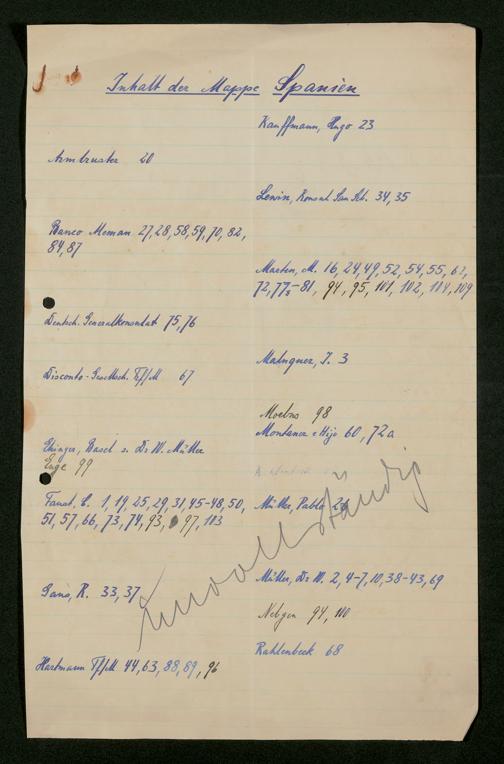 Inhalt der Mappe Spanien
Armbruster 20
Banco Aleman 27, 28, 58, 59, 70, 82,
84, 87
Deutsch. Generalkonsulat 75, 76
Disconto-Gesellsch. Ff/M 67
Ehinger, Basel s. Dr W. Müller
Enge 99
Faust, C. 1, 19, 25, 29, 31, 45-48, 50,
51, 57, 66, 73, 74, 93, 97, 103
Gans, R. 33, 37
Hartmann Ff/M 44, 63, 88, 89, 96
Kauffmann, Hugo 23
Lewin, Konsul 34, 35
Marten, M. 16, 24, 49, 52, 54, 55, 62,
72, 77-81, 94, 95, 101, 102, 104, 109
Malaguer, J. 3
Moebus 98
Montaner e Hijo 60, 72a
Müller, Pablo
Müller, Dr W. 2, 4-7, 10, 38-43, 69
Nebgen 94, 100
Rahlenbeck 68
unvollständig